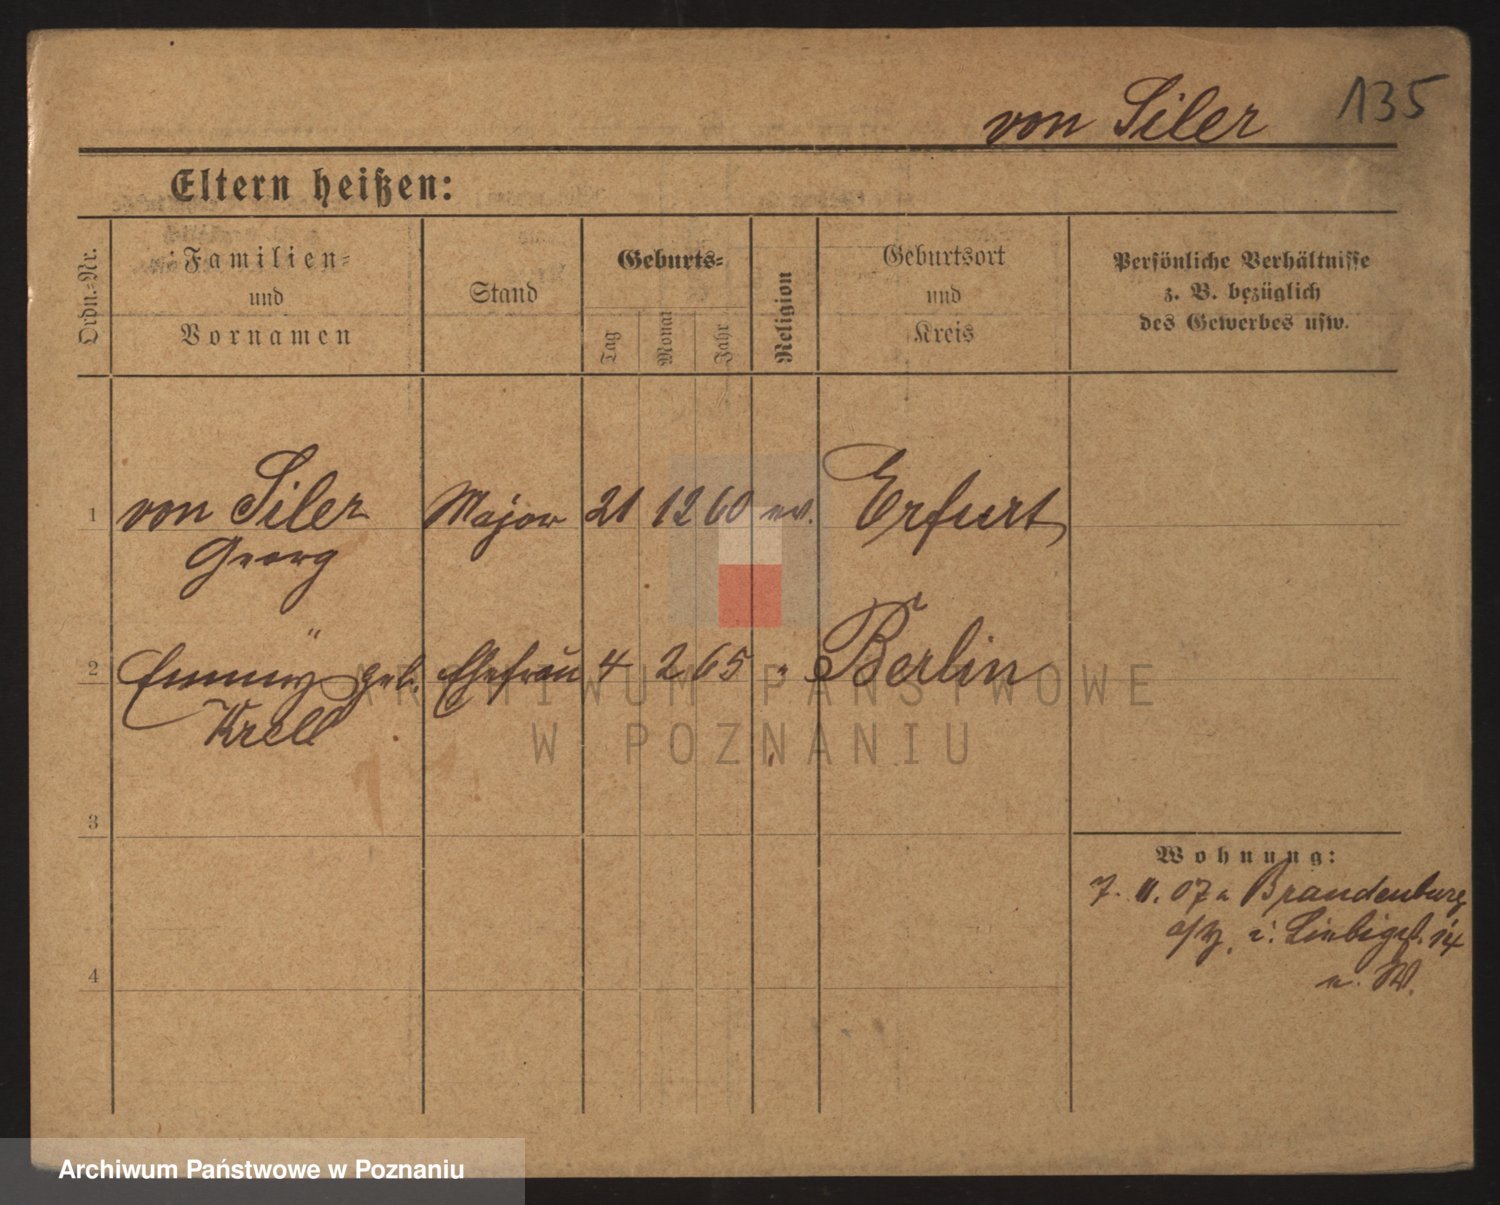 von Siler 135
Eltern heißen:
Ordn.-Nr.
Familien-
und
Vornamen
Stand
Geburts-
Tag
Monat
Jahr
Religion
Geburtsort
und
Kreis
Persönliche Verhältnisse
z. B. bezüglich
des Gewerbes usw.
1 von Siler Major 21 12 60 ev. Erfurt
Georg
2 Emmy geb. Ehefrau 4 2 65 " Berlin
Krell
3
4
Wohnung:
7. 11. 07 n Brandenburg
a/H. Liebigst. 14
n. W.
ARCHIWUM PAŃSTWOWE
W POZNANIU
Archiwum Państwowe w Poznaniu